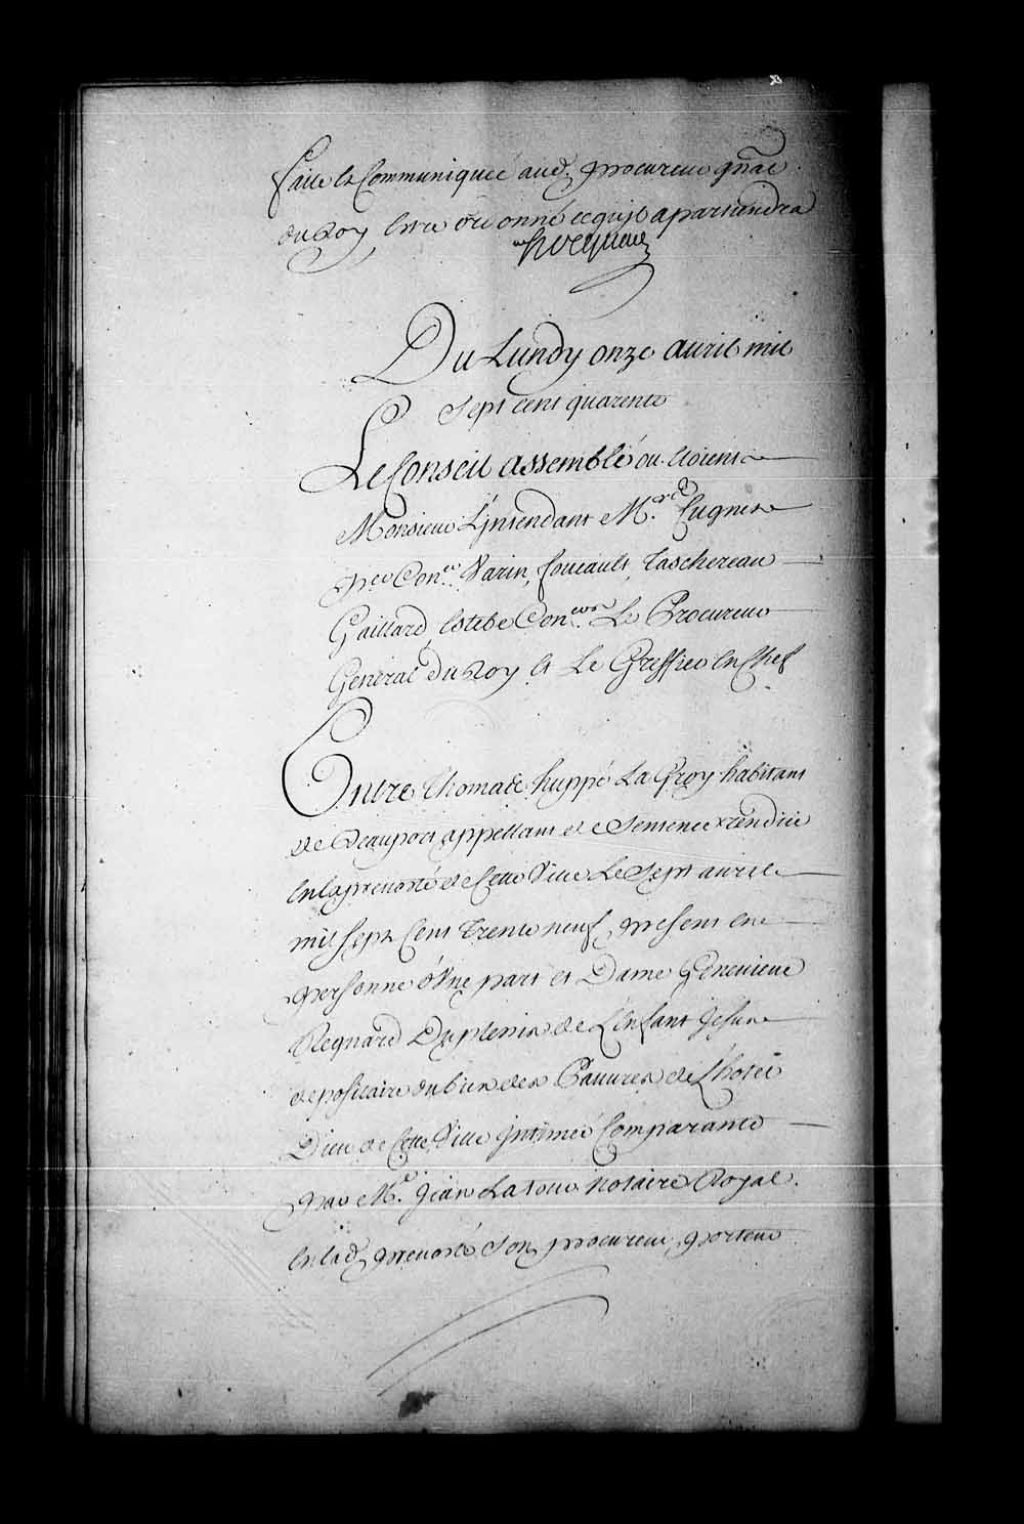 faite et Communiquée aud. procureur gñal
du Roy Estre ordonné cequil apartiendra
hocquart
Du Lundy onze avril mil
Sept cent quarente
Le Conseil assemblé ou Etoient
Monsieur L'jntendant Mrs. Cugnet
per Conr. Varin, foucault, Taschereau
Gaillard Estebe Coners Le Procureur
General du Roy et Le Greffier En Chef
Entre Thomas huppé La Groy habitant
de Beauport appellant de Sentence rendüe
En la prevosté de Cette Ville Le Sept avril
mil Sept Cent Trente neuf, present en
personne d'Vne part et Dame Genevieve
Regnard Duplessis de L'Enfant Jesus
depositaire du bien des Pauvres de L'hotel
Dieu de Cette Ville Intimée Comparante
par Me. Jean Latour Notaire Royal
En lad. prevosté Son procureur, porteur